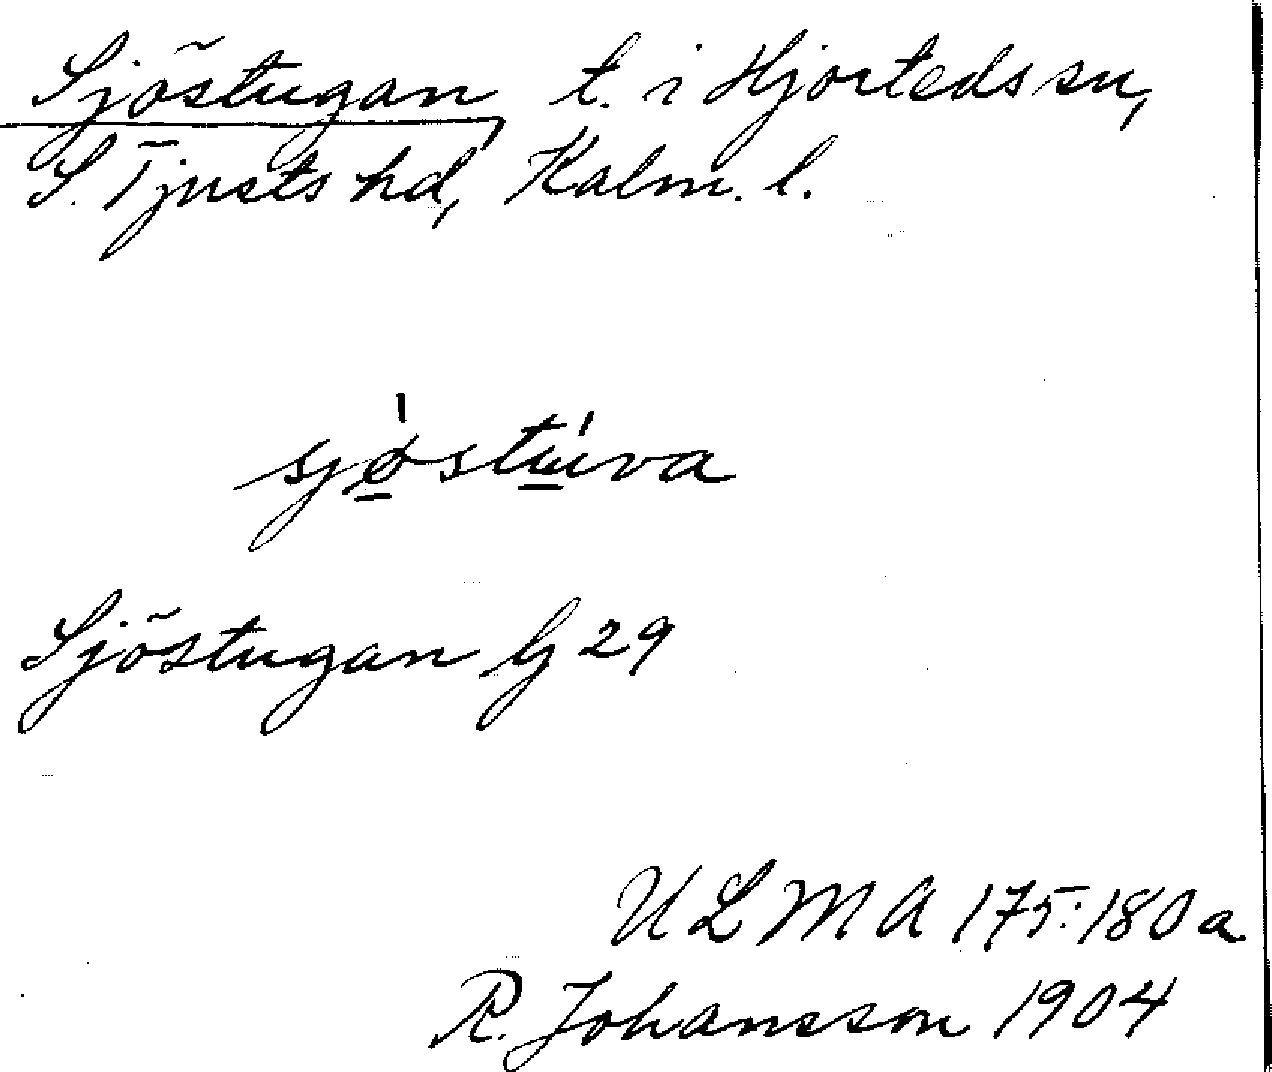 Sjöstugan t. i Hjorteds sn,
S. Tjusts hd, Kalm. l.
sjø̲̍stu̲̍va
Sjöstugan G 29
ULMA 175:180a
R. Johansson 1904